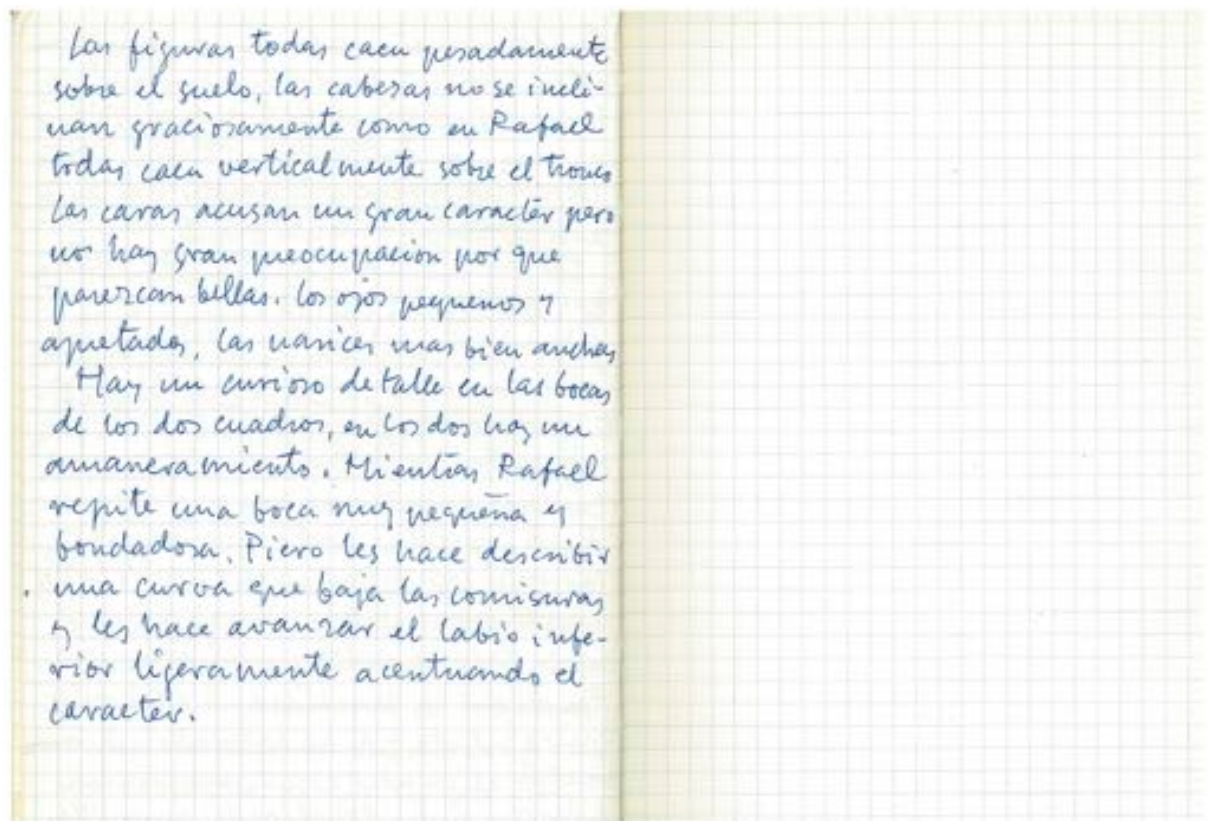 Las figuras todas caen pesadamente
sobre el suelo, las cabezas no se incli-
nan graciosamente como en Rafael
todas caen verticalmente sobre el tronco
Las caras acusan un gran caracter pero
no hay gran preocupacion por que
parezcan bellas. Los ojos pequenos y
apretados, las narices mas bien anchas
Hay un curioso detalle en las bocas
de los dos cuadros, en los dos hay un
amaneramiento. Mientras Rafael
repite una boca muy pequeña y
bondadosa. Piero les hace describir
una curva que baja las comisuras
y les hace avanzar el labio infe-
rior ligeramente acentuando el
caracter.